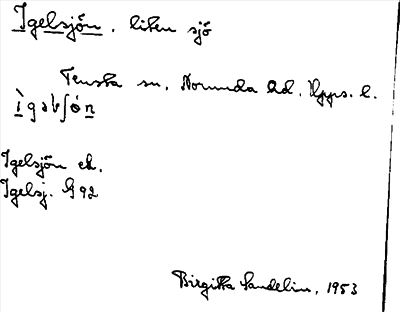 Igelsjön. liten sjö
Tensta sn. Norunda hd. Upps. l.
Igelsjön ek.
Igelsj. G 92
Birgitta Sandelin, 1953